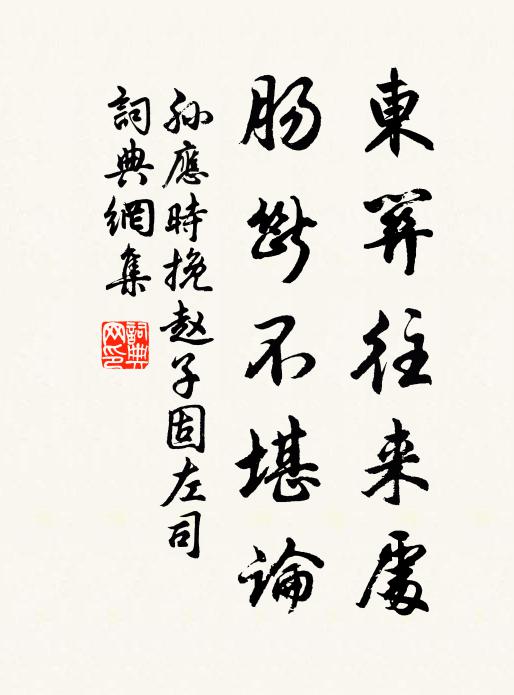 東笄往来處
腸斷不堪論
孙應時挽赵子固左司
詞典網集
詞典網印